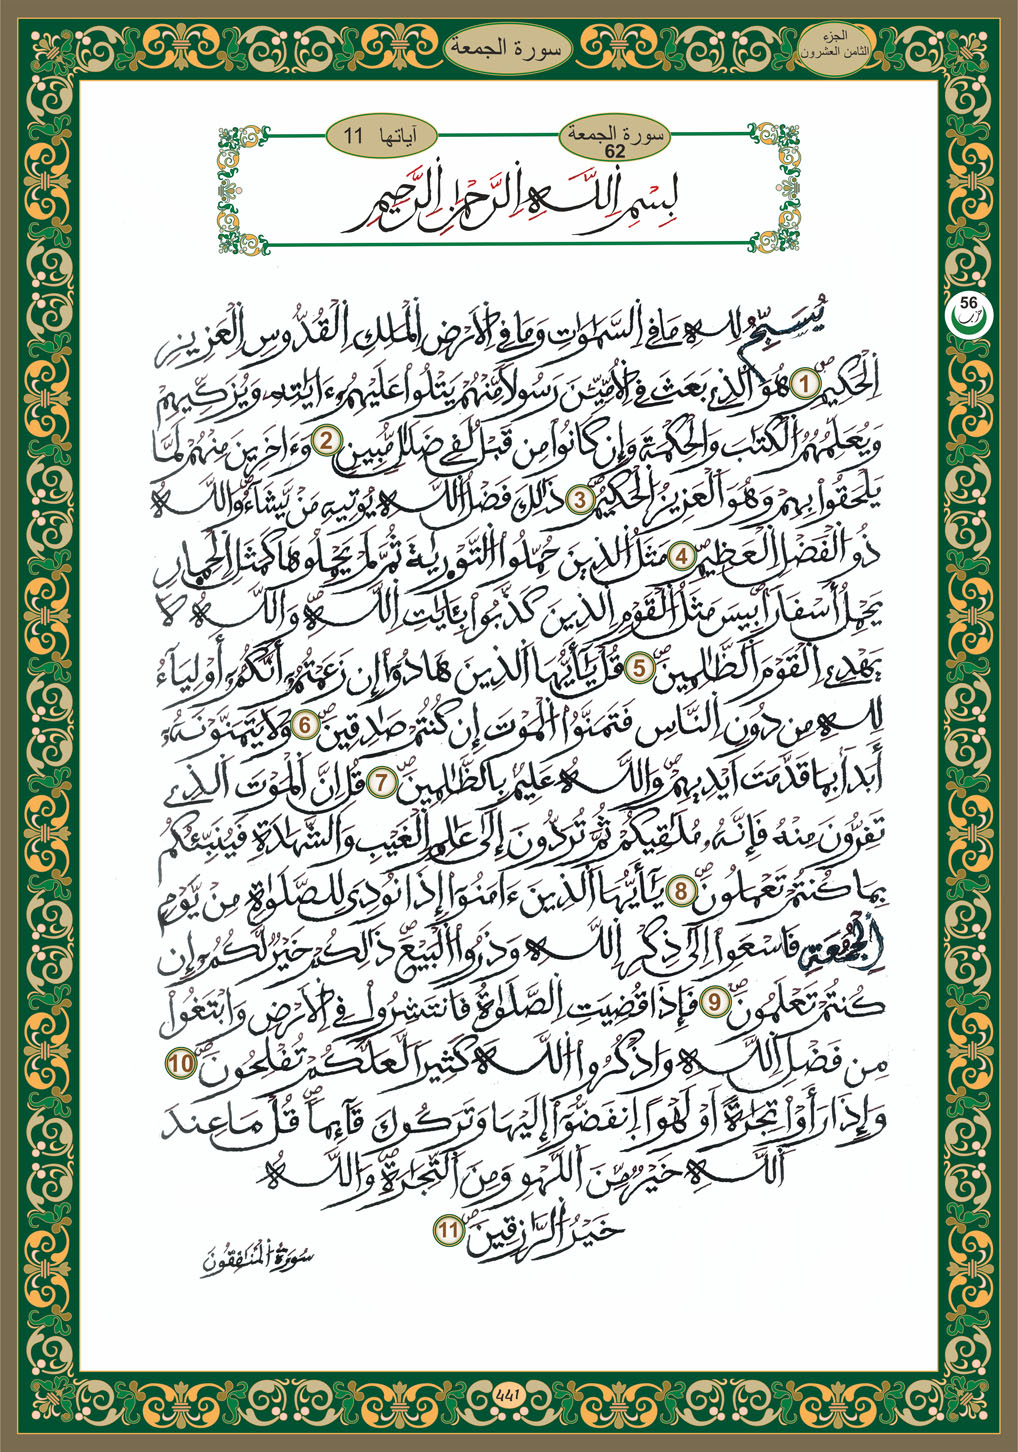 سورة الجمعة
الجزء
الثامن العشرون
سورة الجمعة
62
آياتها 11
بِسْمِ اِللَّهِ اِلرَّحْمٰنِ اِلرَّحِيمِ
56
حزب
يُسَبِّحُ لِلهِ مَا فِے اِلسَّمَٰوَٰتِ وَمَا فِے اِلَارْضِ اِلْمَلِكِ اِلْقُدُّوسِ اِلْعَزِيزِ
اِلْحَكِيمِ 1 هُوَ اَلذِے بَعَثَ فِے اِلُامِّيِّـۧنَ رَسُولاٗ مِّنْهُمْ يَتْلُواْ عَلَيْهِمُۥٓ ءَايَٰتِهِۦ وَيُزَكِّيهِمْ
وَيُعَلِّمُهُمُ اُلْكِتَٰبَ وَالْحِكْمَةَ وَإِن كَانُواْ مِن قَبْلُ لَفِے ضَلَٰلٖ مُّبِينٖ 2 وَءَاخَرِينَ مِنْهُمْ لَمَّا
يَلْحَقُواْ بِهِمْ وَهُوَ اَلْعَزِيزُ اُلْحَكِيمُ 3 ذَٰلِكَ فَضْلُ اُللَّهِ يُوتِيهِ مَنْ يَّشَآءُ وَاللَّهُ
ذُو اُلْفَضْلِ اِلْعَظِيمِ 4 مَثَلُ اُلذِينَ حُمِّلُواْ اُلتَّوْر۪يٰةَ ثُمَّ لَمْ يَحْمِلُوهَا كَمَثَلِ اِلْحِمَارِ
يَحْمِلُ أَسْفَاراَۢ بِيسَ مَثَلُ اُلْقَوْمِ اِلذِينَ كَذَّبُواْ بِـَٔايَٰتِ اِللَّهِ وَاللَّهُ لَا
يَهْدِے اِلْقَوْمَ اَلظَّٰلِمِينَ 5 قُلْ يَٰٓأَيُّهَا اَلذِينَ هَادُوٓاْ إِن زَعَمْتُمُۥٓ أَنَّكُمُۥٓ أَوْلِيَآءُ
لِلهِ مِن دُونِ اِلنَّاسِ فَتَمَنَّوُاْ اُلْمَوْتَ إِن كُنتُمْ صَٰدِقِينَ 6 وَلَا يَتَمَنَّوْنَهُۥٓ
أَبَداَۢ بِمَا قَدَّمَتَ اَيْدِيهِمْ وَاللَّهُ عَلِيمُۢ بِالظَّٰلِمِينَ 7 قُلِ اِنَّ اَلْمَوْتَ اَلذِے
تَفِرُّونَ مِنْهُ فَإِنَّهُۥ مُلَٰقِيكُمْ ثُمَّ تُرَدُّونَ إِلَىٰ عَٰلِمِ اِلْغَيْبِ وَالشَّهَٰدَةِ فَيُنَبِّئُكُم
بِمَا كُنتُمْ تَعْمَلُونَ 8 يَٰٓأَيُّهَا اَلذِينَ ءَامَنُوٓاْ إِذَا نُودِيَ لِلصَّلَوٰةِ مِنْ يَّوْمِ
اِلْجُمُعَةِ فَاسْعَوِاْ اِلَىٰ ذِكْرِ اِللَّهِ وَذَرُواْ اُلْبَيْعَ ذَٰلِكُمْ خَيْرٞ لَّكُمُۥٓ إِن
كُنتُمْ تَعْلَمُونَ 9 فَإِذَا قُضِيَتِ اِلصَّلَوٰةُ فَانتَشِرُواْ فِے اِلَارْضِ وَابْتَغُواْ
مِن فَضْلِ اِللَّهِ وَاذْكُرُواْ اُللَّهَ كَثِيراٗ لَّعَلَّكُمْ تُفْلِحُونَ 10
وَإِذَا رَأَوْاْ تِجَٰرَةً اَوْ لَهْواً اِنفَضُّوٓاْ إِلَيْهَا وَتَرَكُوكَ قَآئِماٗ قُلْ مَا عِندَ
اَللَّهِ خَيْرٞ مِّنَ اَللَّهْوِ وَمِنَ اَلتِّجَٰرَةِ وَاللَّهُ
خَيْرُ اُلرَّٰزِقِينَ 11
سُورَةُ اُلْمُنَٰفِقُونَ
441